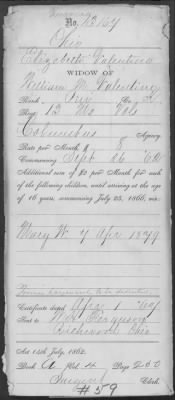 No. 73,167
Ohio
Elizabeth Valentine
WIDOW OF
William M. Valentine
Rank Priv Co.
Reg. 12 Mo Vols
Columbus Agency
Rate per Month $ 8
Commencing Sept 26 '62
Additional sum of $2 per Month for each
of the following children, until arriving at the age
of 16 years, commencing July 25, 1866, viz:
Mary W. 7 Apr 1879
Certificate dated Apr 1 '67
Sent to Ferguson
Richwood Ohio
Act 14th July, 1862.
Book A Vol. 4 Page 260
Clerk.
#59